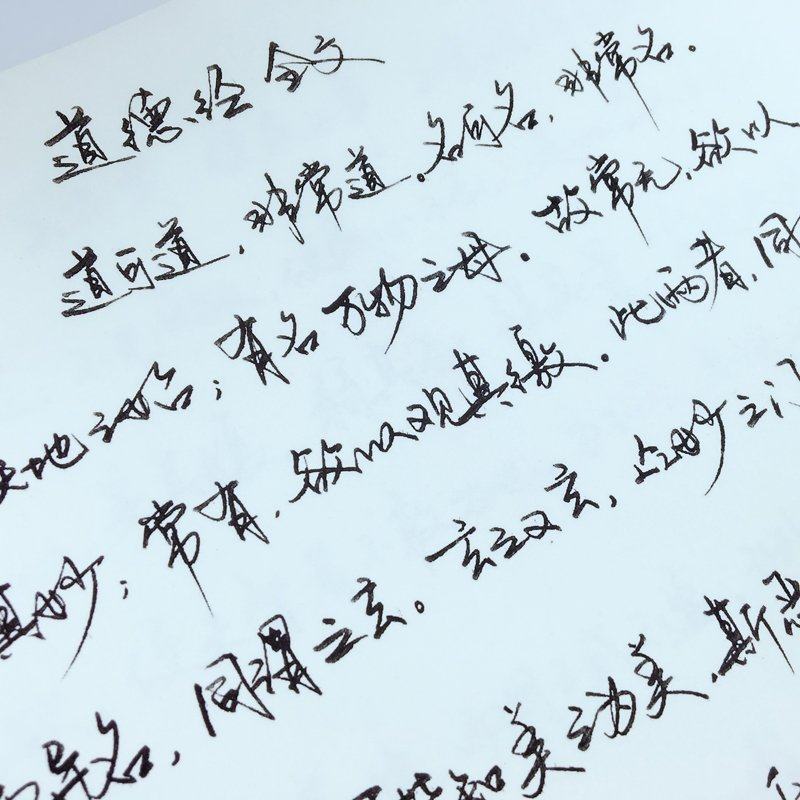 道德经全文
道可道，非常道。名可名，非常名.
天地之始；有名万物之母.故常无，欲以
其妙；常有，欲以观其徼.此两者，同
而异名，同谓之玄。玄之又玄，众妙之门
皆知美之为美，斯恶